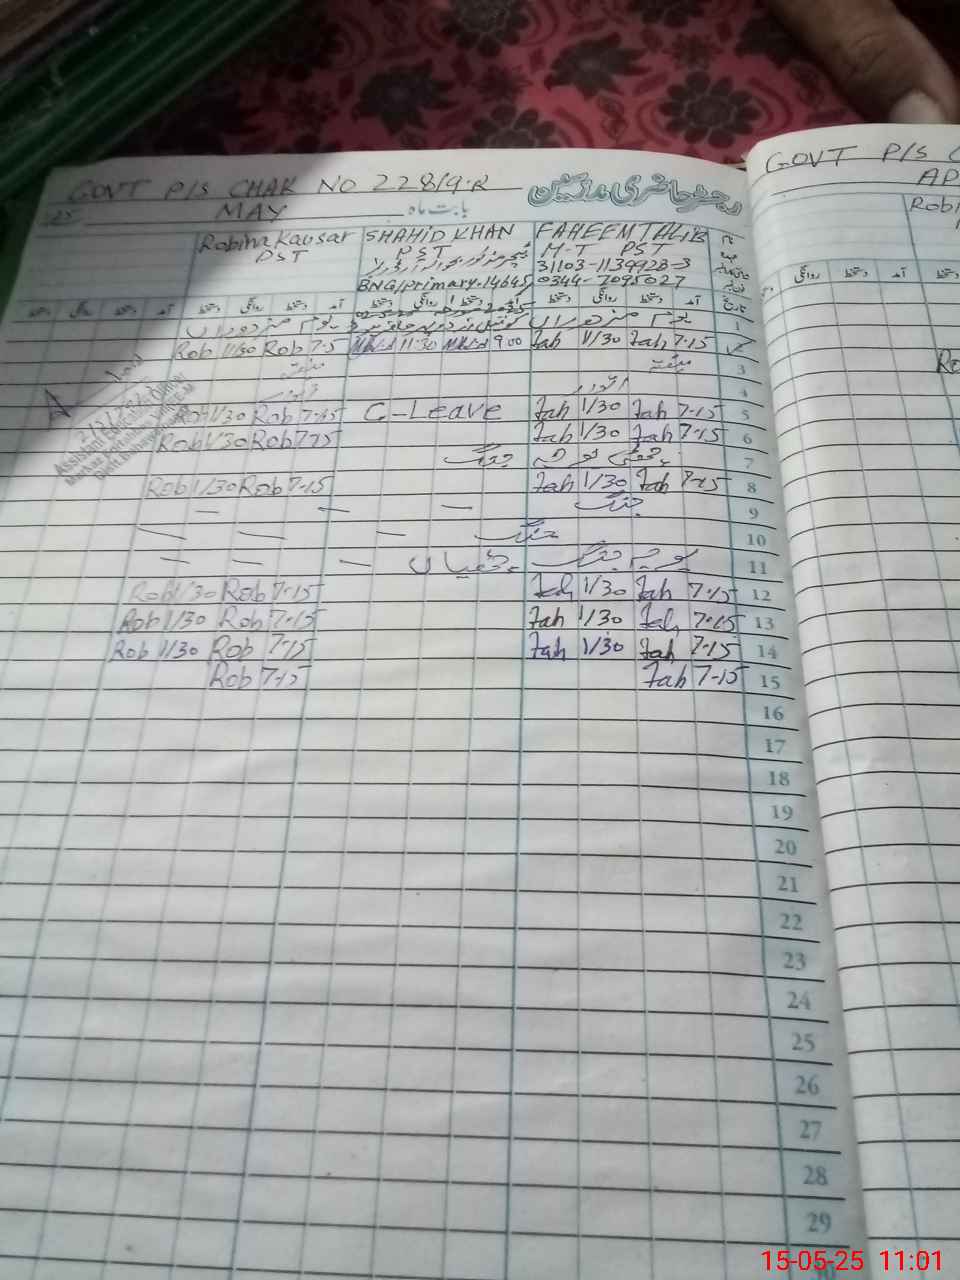 GOVT P/S CHAK NO 228/9-R رجسٹر حاضری ملازمین
25 MAY بابت ماہ
Robina Kausar SHAHID KHAN FAHEEM TALIB
PST PST M-T PST
31103-1139928-3
BNG/primary-14645 0344-7095027
دستخط روانگی دستخط آمد دستخط روانگی دستخط آمد دستخط روانگی دستخط آمد تاریخ
یوم مزدوراں یوم مزدوراں 1
Rob 1/30 Rob 7-5 11:30 9:00 Fah 1/30 Fah 7-15
ہفتہ ہفتہ 3
اتوار اتوار 4
Rob 1/30 Rob 7-15 C-Leave Fah 1/30 Fah 7-15 5
Rob 1/30 Rob 7-15 Fah 1/30 Fah 7-15 6
جنگ چھٹی بوجہ 7
Rob 1/30 Rob 7-15 Fah 1/30 Fah 7-15 8
— — — جنگ 9
— — — جنگ 10
— — — چھٹیاں بوجہ جنگ 11
Rob 1/30 Rob 7-15 Fah 1/30 Fah 7-15 12
Rob 1/30 Rob 7-15 Fah 1/30 Fah 7-15 13
Rob 1/30 Rob 7-15 Fah 1/30 Fah 7-15 14
Rob 7-15 Fah 7-15 15
16
17
18
19
20
21
22
23
24
25
26
27
28
29
Assistant Education Officer
GOVT P/S C
AP
Robi
روانگی دستخط آمد
Ro
15-05-25 11:01